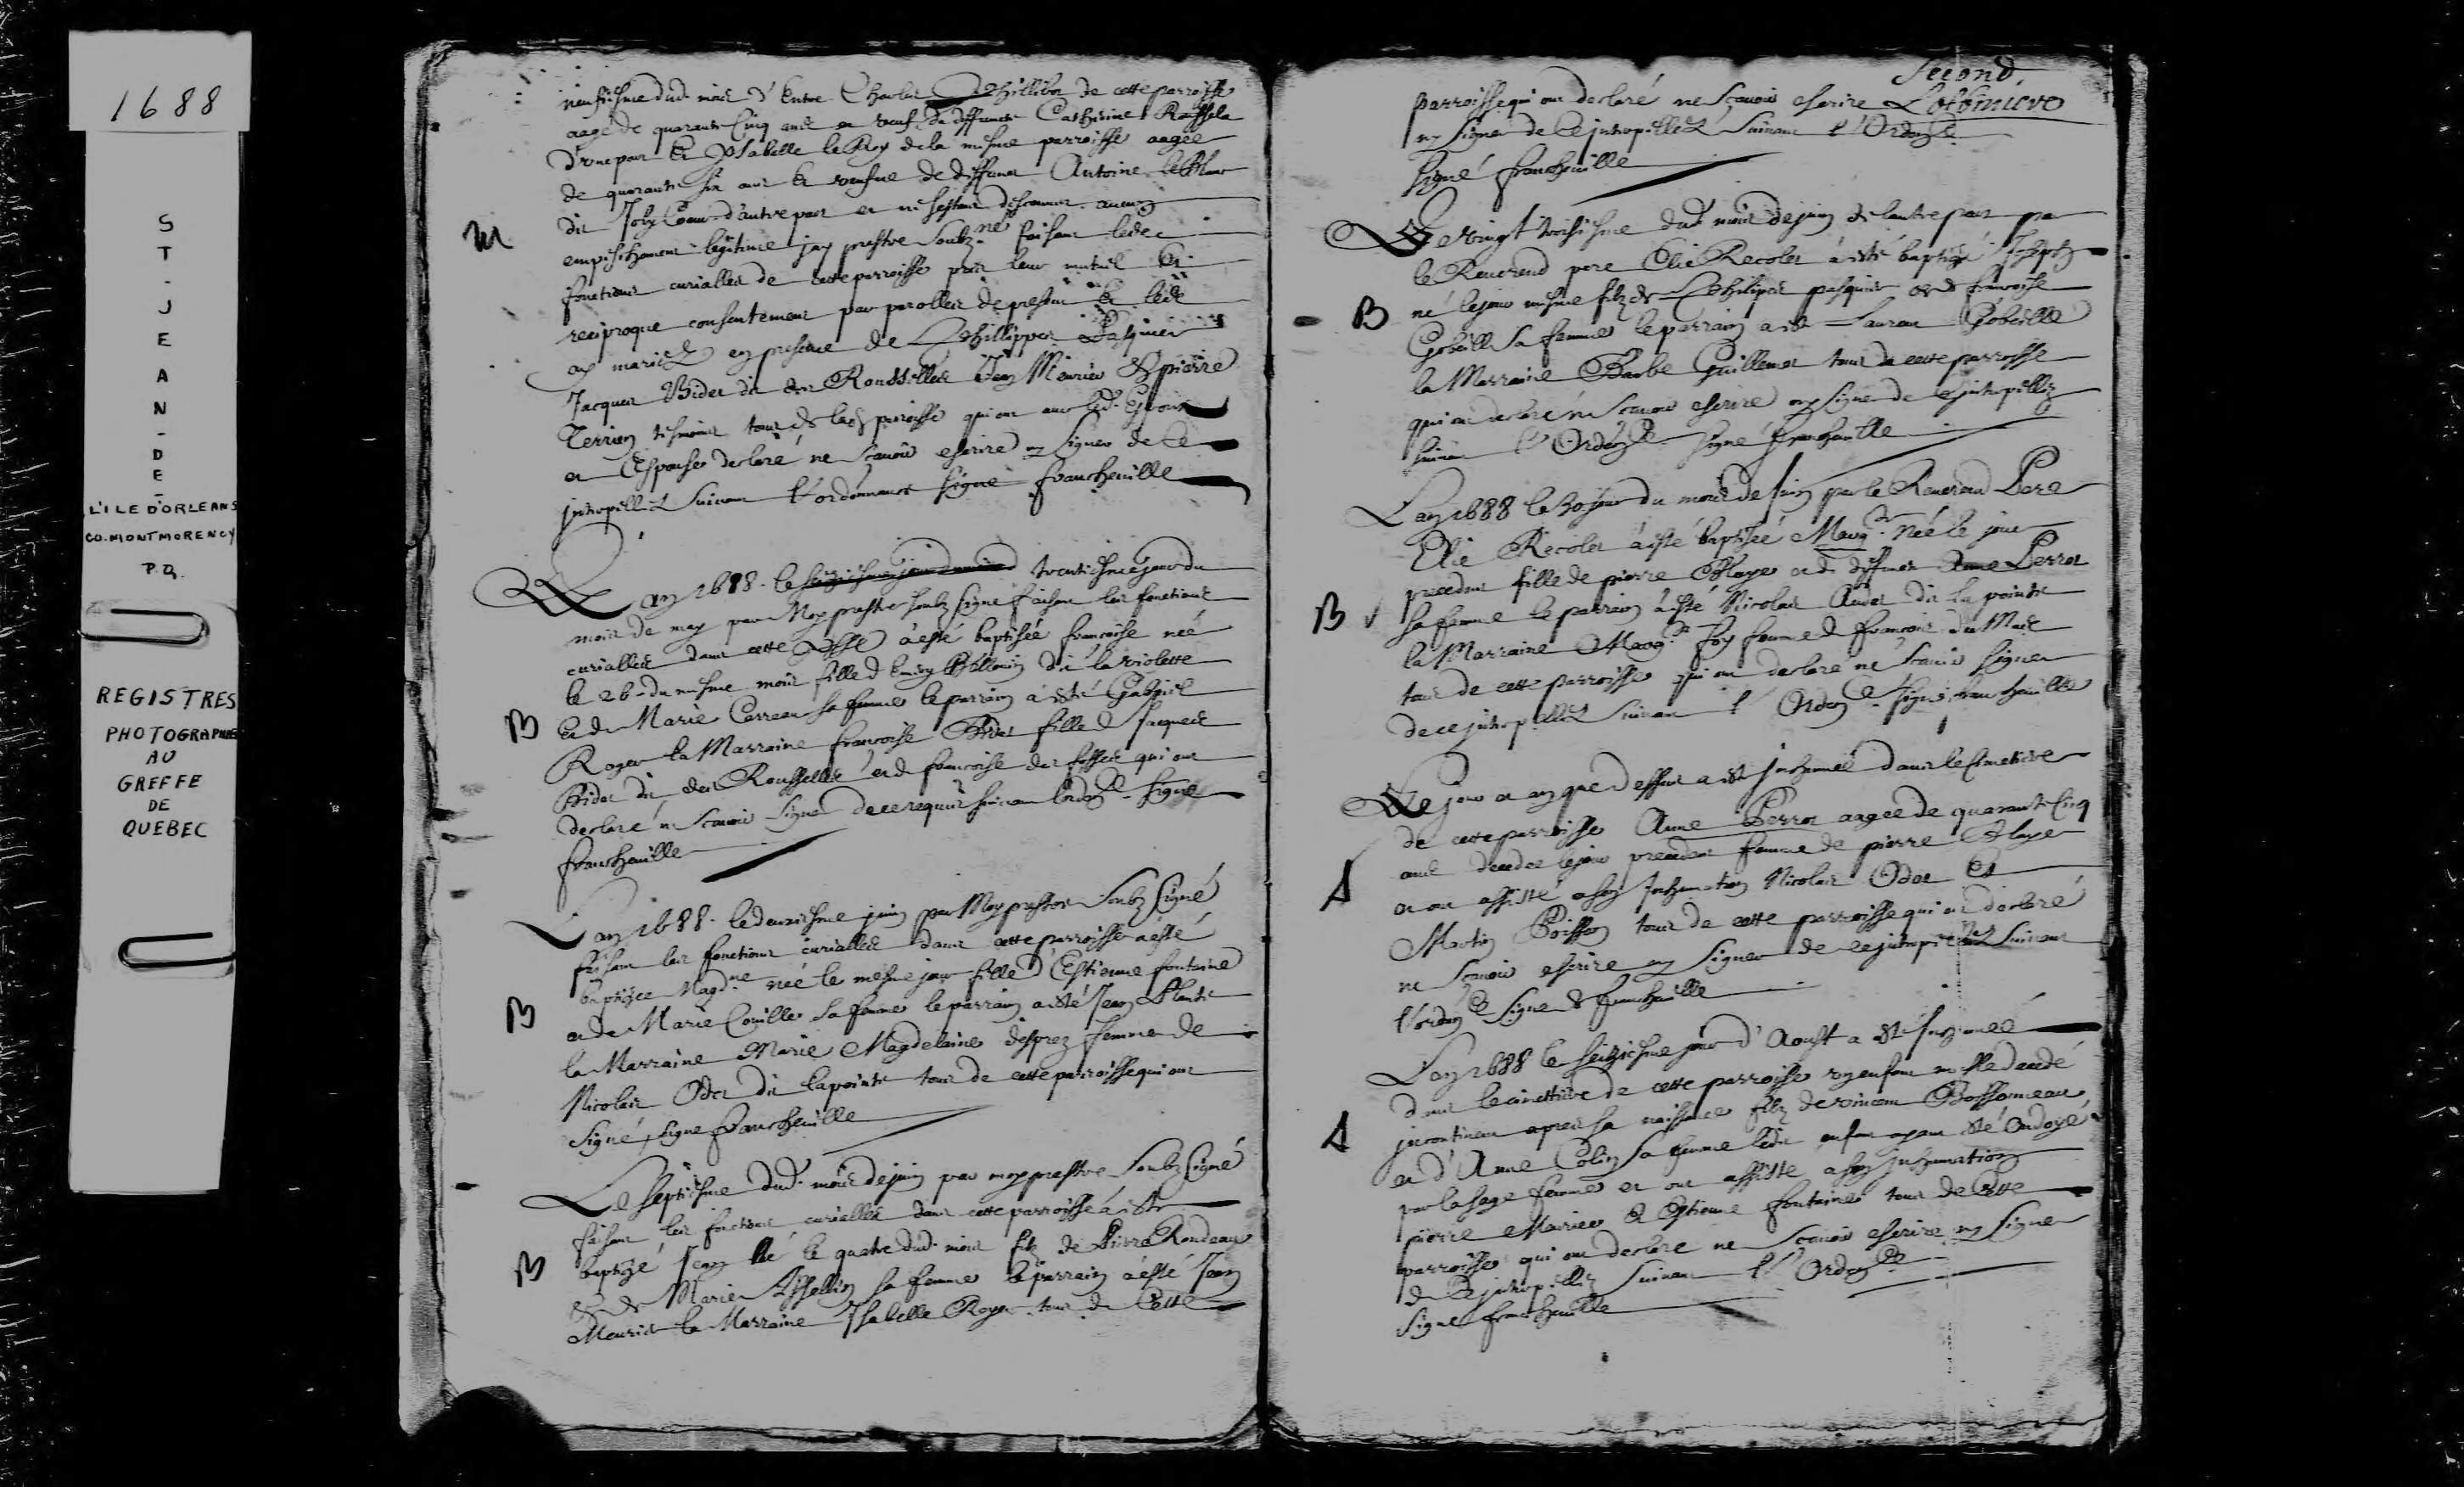 1688
ST-JEAN-DE-
L'ILE D'ORLEANS
CO. MONTMORENCY
P.Q.
REGISTRES
PHOTOGRAPHIÉS
AU
GREFFE
DE
QUEBEC
neufiesme dud. mois d'Entre Charles Phillibot de cette parroisse
aagé de quarante Cinq ans et veuf de deffuncte Catherine
d'une part Et Ysabelle le Roy de la mesme parroisse aagée
de quarante six ans Et veufve de deffunct Antoine leblanc
dit Joly Coeur d'autre part et ne sestant descouvert aucun
M
empeschement legitime jay prestre soubz.né faisant les
fonctions curialles de cette parroisse pris leur mutuel Et
reciproque consentement par parolles de present Et les
ay mariez en presence de Phillippes Pasquier
Jacques Bidet dit des Rousselles Jean Meurier & pierre
Terrien tesmoins tous de lad parroisse qui ont avec led. Espoux
et Espouse declaré ne scavoir escrire ny signer de ce
interpellez suivant l'ordonnance signé francheuille
Lan 1688. le trentiesme jour du
mois de may par Moy prestre soubz signé faisant les fonctions
curialles dans cette psse a esté baptisée francoise née
le 26 du mesme mois fille d'Emery Bellouin dit la violette
B
Et de Marie Carreau sa femme le parrain a esté Gabriel
Roger la Marraine francoise Bidet fille de Jacques
Bidet dit des Rousselles et de francoise des fosses qui ont
declaré ne scavoir signer de ce requis suivant lordce signé
francheuille
Lan 1688. le deuxiesme juin par Moy prestre soubz signé
faisant les fonctions curialles dans cette parroisse a esté
baptisée Magd.ne née le mesme jour fille d'Estienne fontaine
B
et de Marie Conille sa femme le parrain a esté Jean Plante
la Marraine Marie Magdelaine desprez femme de
Nicolas Odet dit lapointe tous de cette parroisse qui ont
signé, signé francheuille
Le septiesme dud. mois de juin par moy prestre soubz signé
faisant les fonctions curialles dans cette parroisse a esté
B
baptizé Jean né le quatre dud. mois filz de Pierre Rondeau
& de Marie Asselin sa femme le parrain a esté Jean
Meurier la Marraine Isabelle Roger tous de Cette
Second.
Lotbiniere
parroisse qui ont declaré ne scavoir escrire
ny signer de ce interpellez suivant l'Ordce
signé francheuille
Le vingt troisiesme dud mois de juin de lautre part par
le Reverend pere Elie Recolet a esté baptisé Joseph
B
né le jour mesme filz de Philipes pasquier et de francoise
Gobeille sa femme le parrain a esté Laurent Gobeille
la Marraine Barbe Guillemet tous de cette parroisse
qui ont declaré ne scavoir escrire ny signer de ce interpellez
suivant l'Ordce signé francheuille
Lan 1688 le 30 jour du mois de juin par le Reverend Pere
Elie Recolet a esté baptisée Marg.te Née le jour
precedent fille de pierre Blaye et de deffuncte Anne Perrot
B
sa femme le parrain a esté Nicolas Audet dit la pointe
la Marraine Marg.te foy femme de francois du Mas
tous de cette parroisse qui ont declaré ne scavoir signer
de ce interpellez suivant l'Ordce signé francheuille
Le jour et an que dessus a esté inhumée dans le Cimetiere
de cette parroisse Anne Perrot aagée de quarante Cinq
ans decedée le jour precedent femme de pierre Blaye
A
et ont assisté a son Inhumation Nicolas Odet Et
Martin Poisson tous de cette parroisse qui ont declaré
ne scavoir escrire ny signer de ce interpellez suivant
l'ordce signé francheuille
Lan 1688 le seiziesme jour d'Aoust a esté inhumé
dans le cimettiere de cette parroisse un enfant masle decedé
incontinent apres sa naissance filz de vincent Bossonneau
A
et d'Anne Colin sa femme ledit enfant ayant esté Ondoyé
par la sage femme et ont assisté a son inhumation
pierre Meurier Et Estienne fontaine tous de Cette
parroisse qui ont declaré ne scavoir escrire ny signer
de ce interpellez suivant l'Ordce
signé francheuille